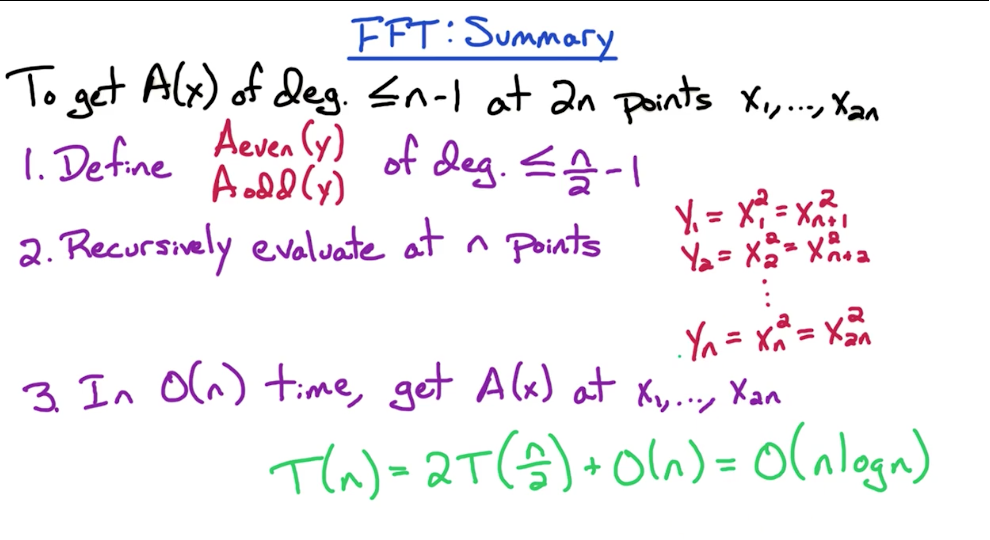 FFT: Summary
To get A(x) of deg. ≤ n-1 at 2n points x₁,..., x₂ₙ
1. Define Aeven(y) of deg. ≤ n/2 - 1
Aodd(y)
y₁ = x₁² = x²ₙ₊₁
2. Recursively evaluate at n points
y₂ = x₂² = x²ₙ₊₂
⋮
yₙ = xₙ² = x²₂ₙ
3. In O(n) time, get A(x) at x₁,..., x₂ₙ
T(n) = 2T(n/2) + O(n) = O(nlogn)